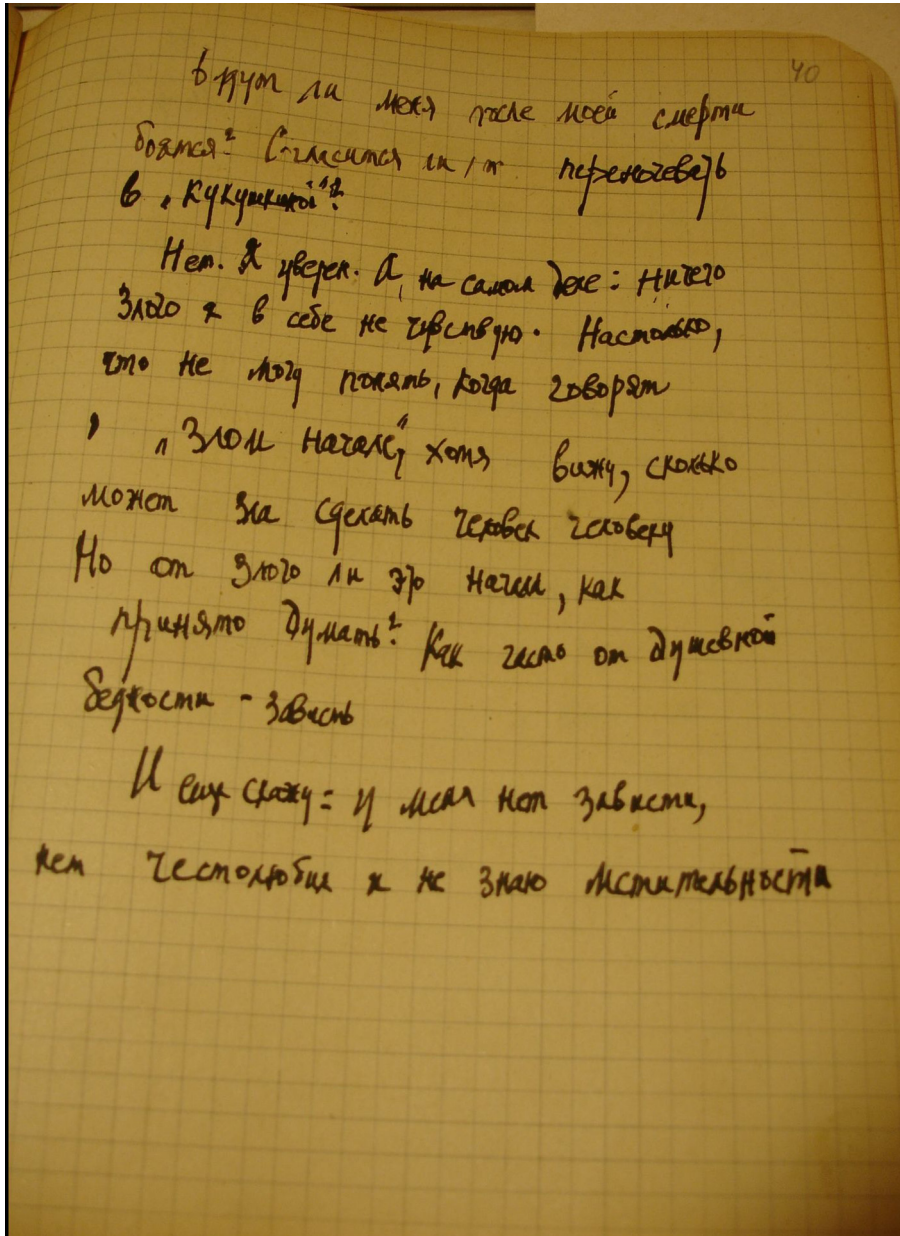 40
Будут ли меня после моей смерти
боятся? Согласится ли кто переночевать
в „Кукушкиной"?
Нет. Я уверен. А, на самом деле: ничего
злого я в себе не чувствую. Настолько,
что не могу понять, когда говорят
о „Злом начале", хотя вижу, сколько
может зла сделать человек человеку
Но от злого ли это начала, как
принято думать? Как часто от душевной
бедности - зависть
И еще скажу: у меня нет зависти,
нет честолюбия я не знаю мстительности